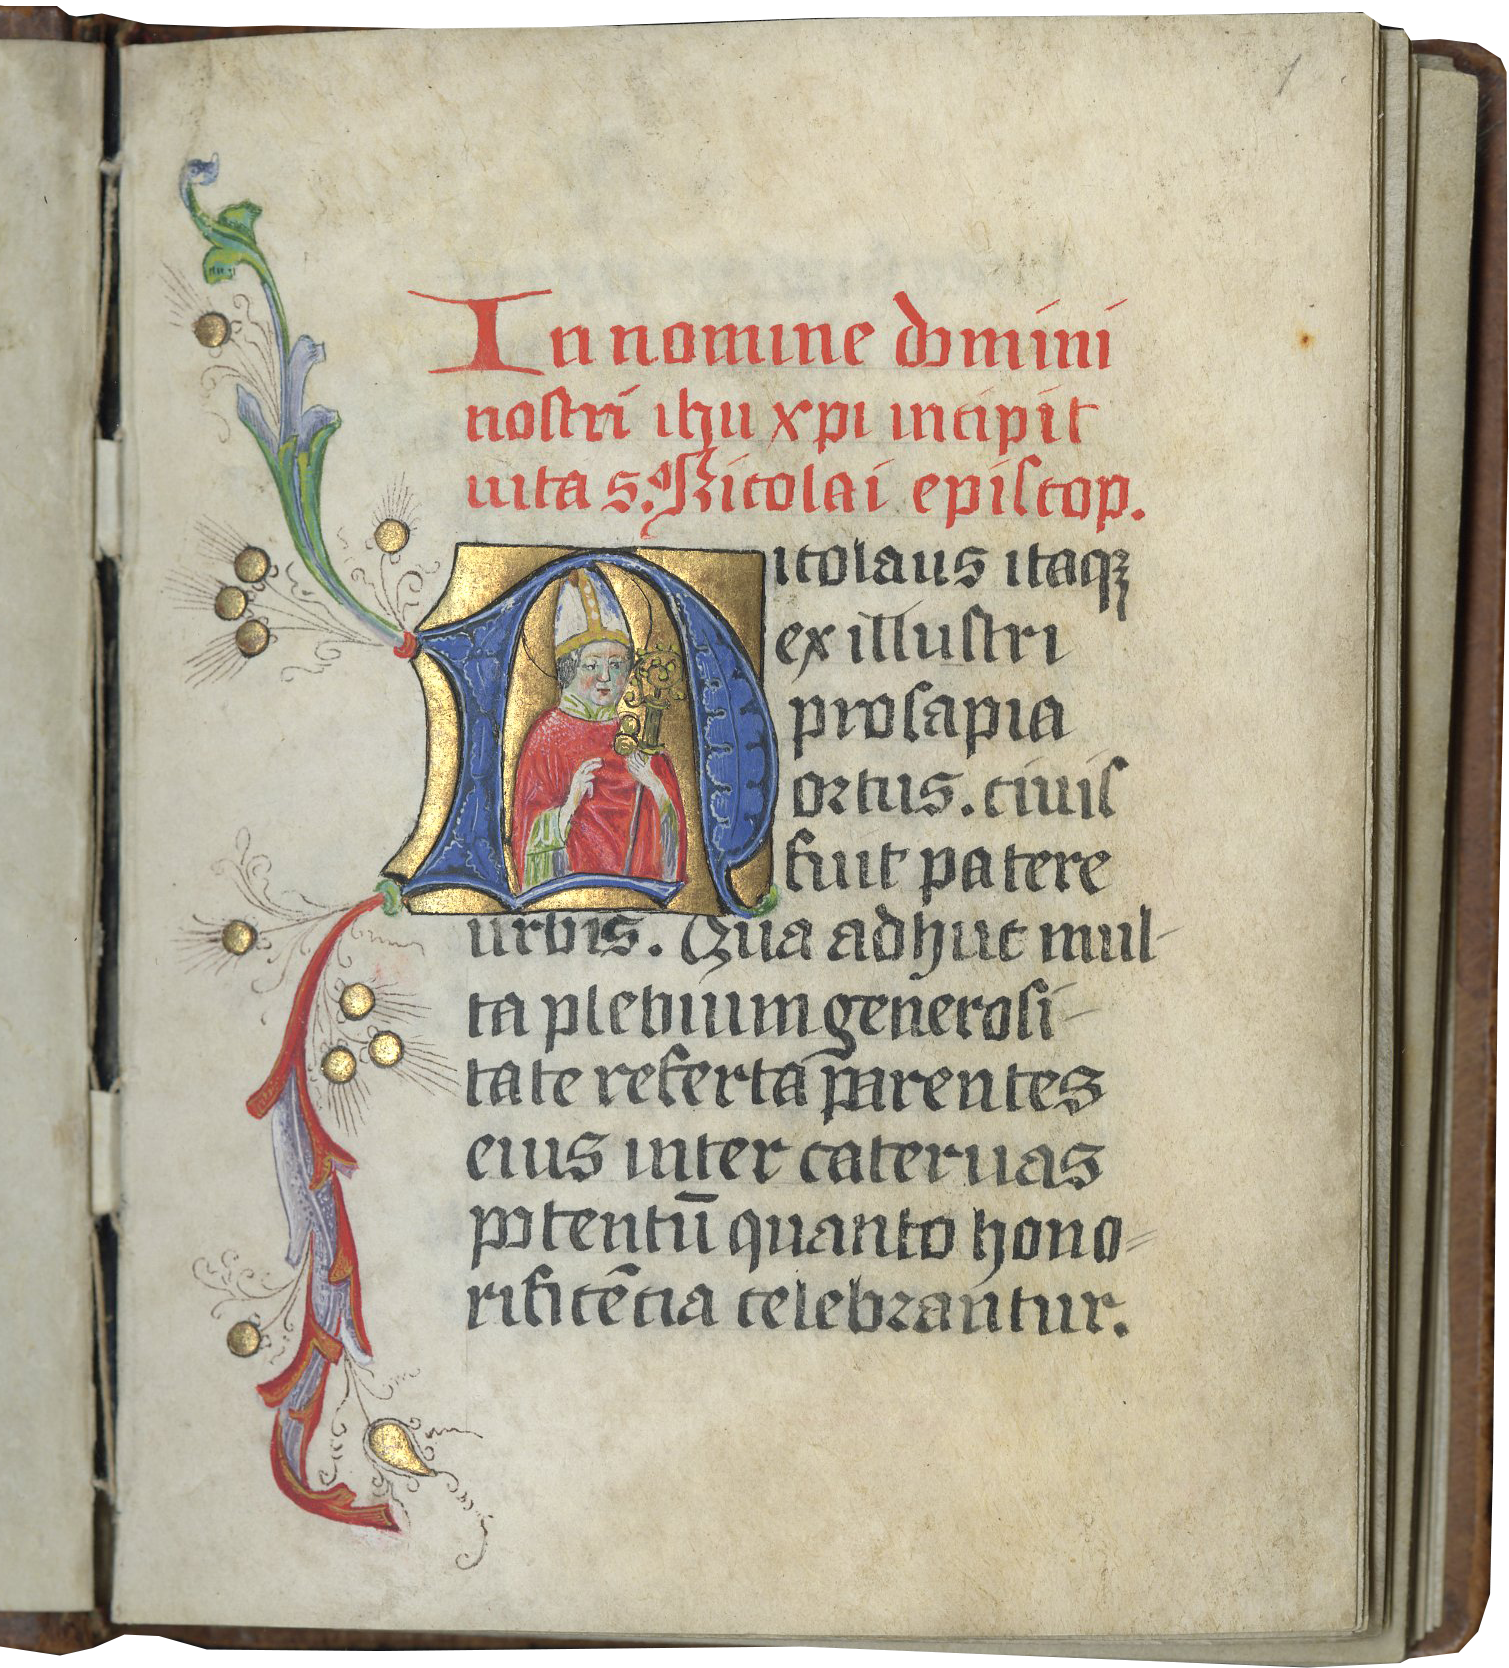 1
In nomine domini
nostri ihu xpi incipit
uita s. Nicolai episcop.
Nicolaus itaqꝫ
ex illustri
prosapia
ortus. ciuis
fuit patere
urbis. Qua adhuc mul-
ta plebiium generosi-
tate referta parentes
eius inter cateruas
potentū quanto hono-
rificēcia celebrantur.